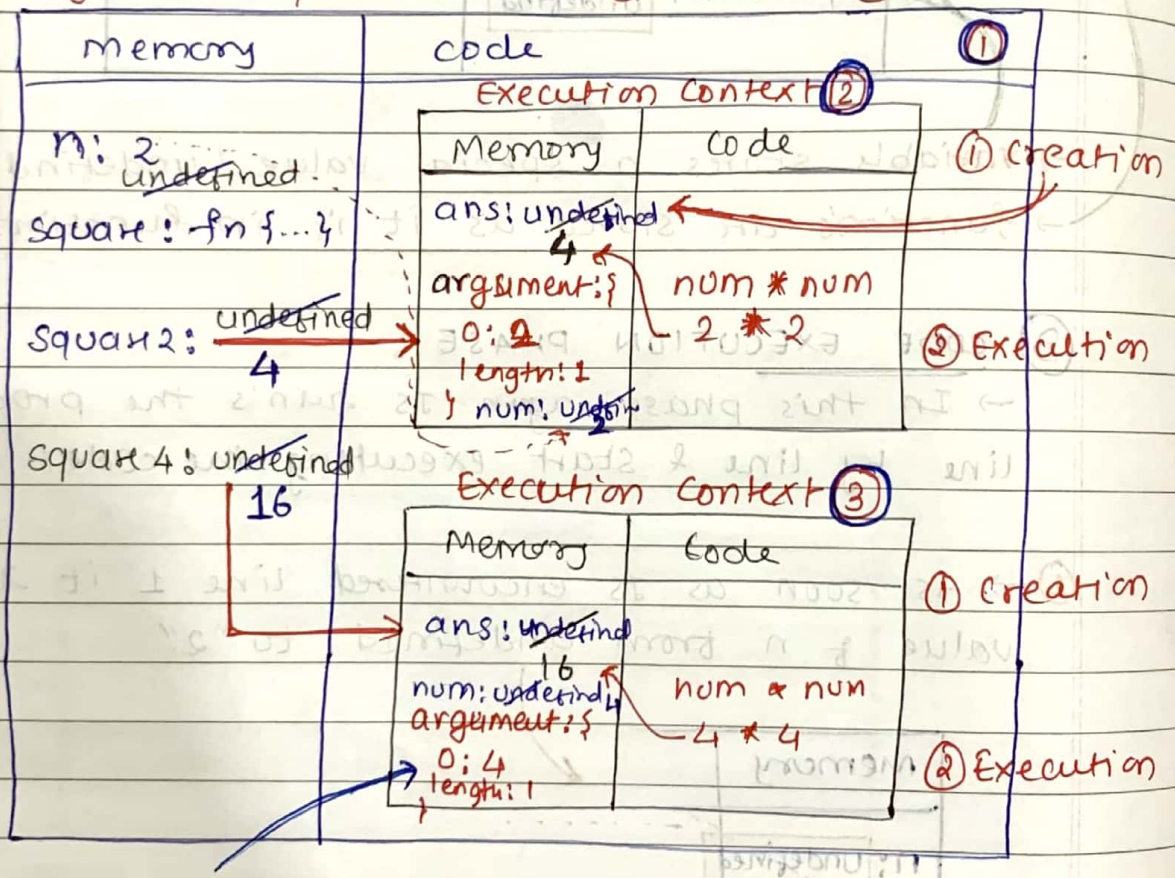 Memory code ①
Execution Context ②
n: 2
undefined.
Square: fn {...}
Square2: undefined
4
Square4: undefined
16
Memory Code
ans: undefined
4
argument: {
0: 2
length: 1
} num: undefin
2
num * num
2 * 2
① Creation
② Execution
Execution Context ③
Memory Code
ans: undefind
16
num: undefind 4
argument: {
0: 4
length: 1
}
num * num
4 * 4
① Creation
② Execution